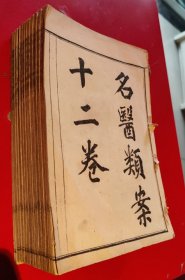 名醫類案
十二卷